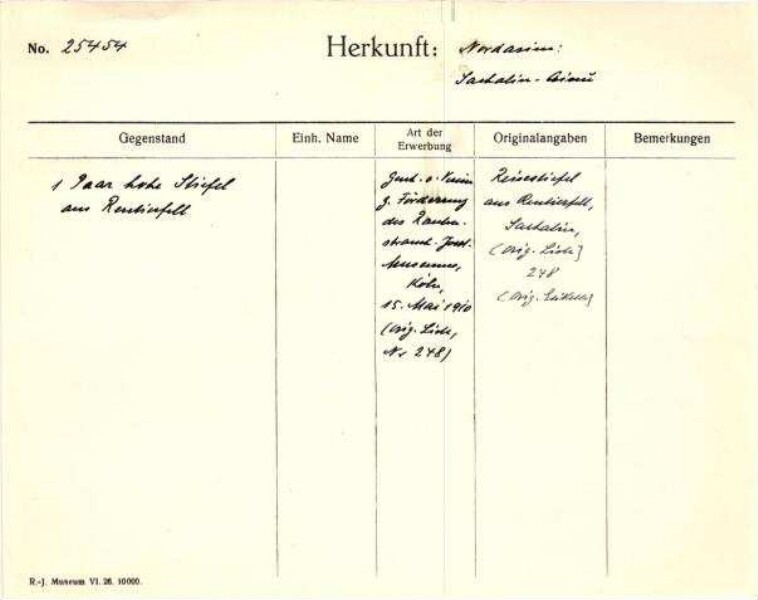 No. 25454
Herkunft: Nordasien:
Sachalin-Ainu
Gegenstand
Einh. Name
Art der
Erwerbung
Originalangaben
Bemerkungen
1 Paar hohe Stiefel
aus Rentierfell
Gesch. v. Verein
z. Förderung
des Rauten-
strauch-Joest-
Museums,
Köln,
15. Mai 1910
(Orig. Liste,
Nr 248)
Reisestiefel
aus Rentierfell,
Sachalin,
(Orig. Liste)
248
(Orig. Etikett)
R.-J. Museum VI. 26. 10000.